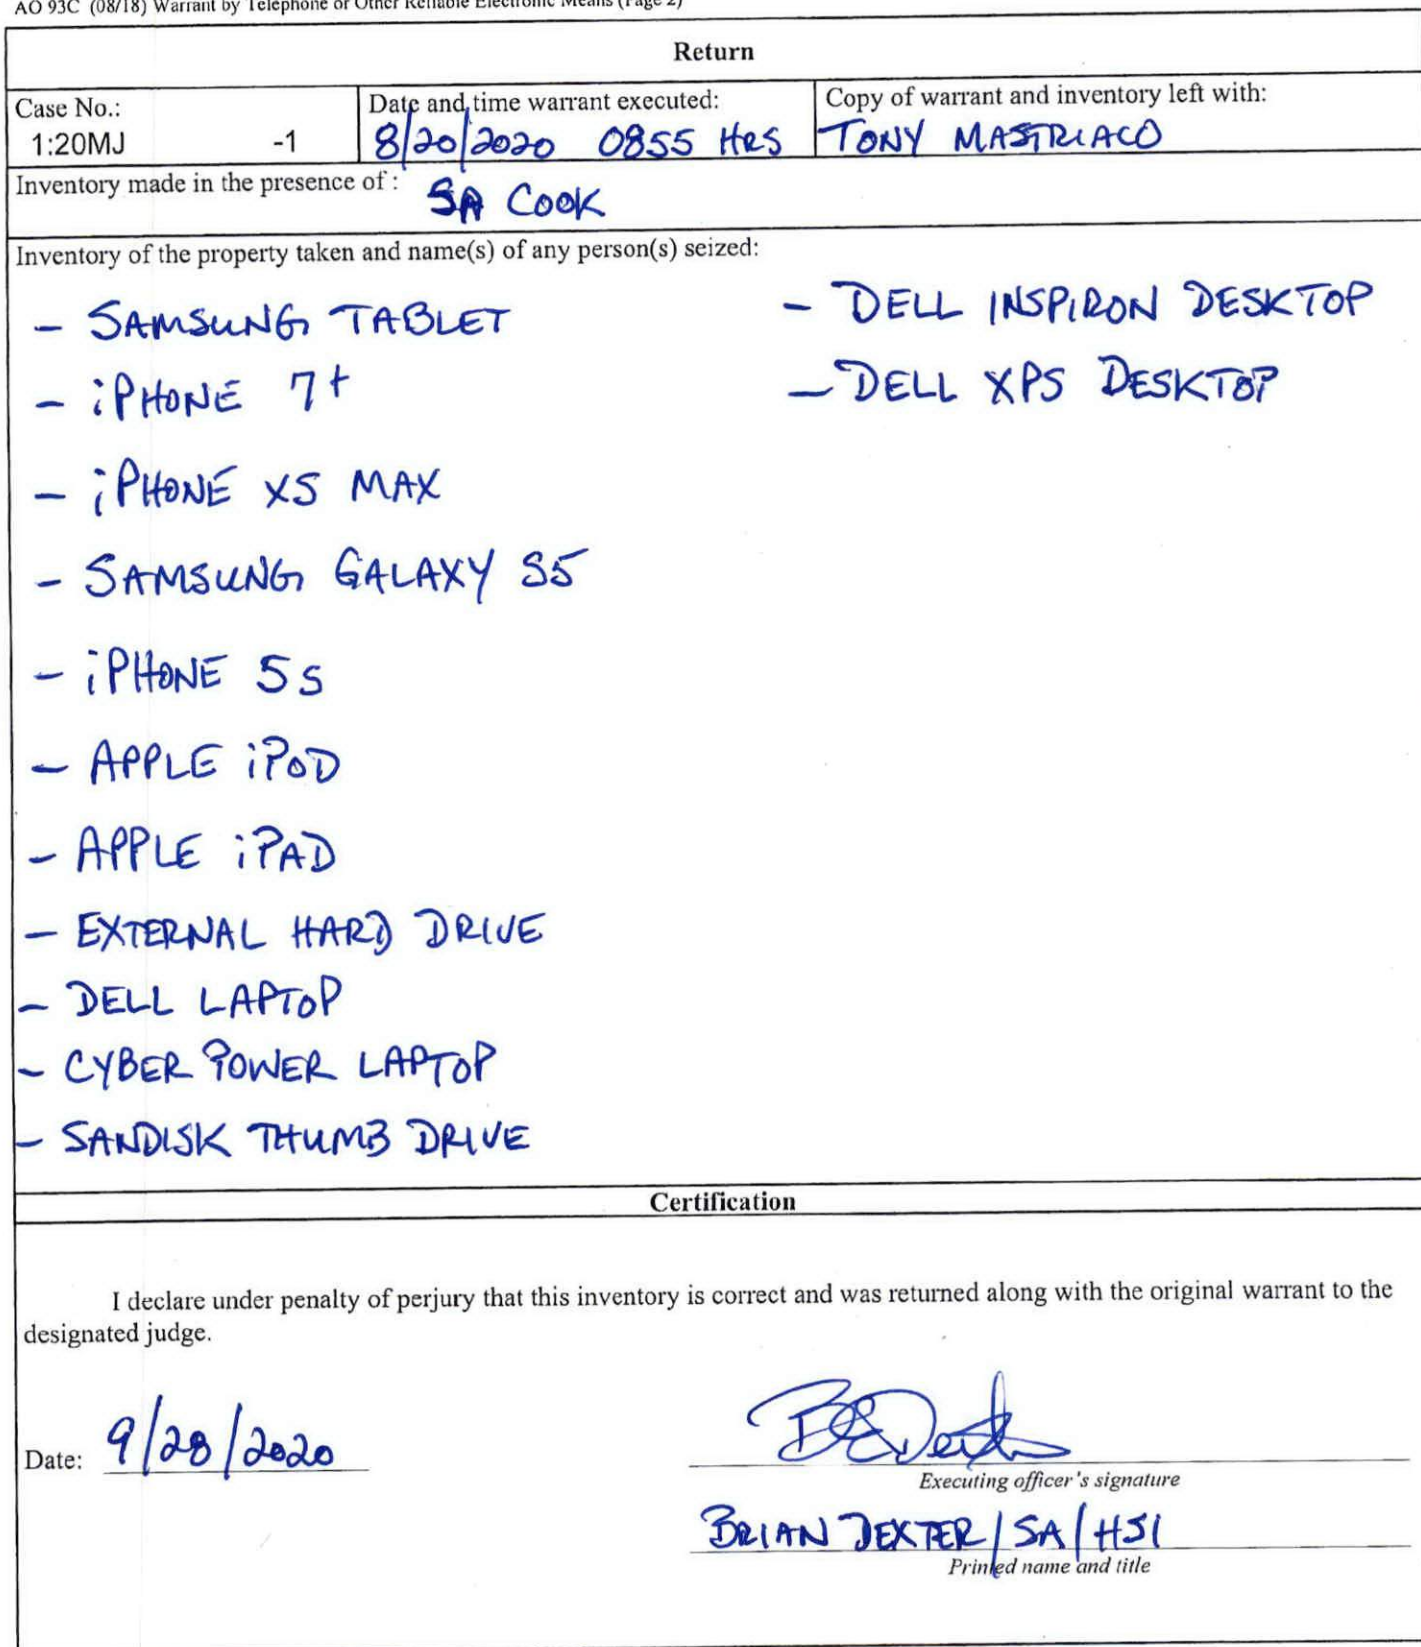 AO 93C (08/18) Warrant by Telephone or Other Reliable Electronic Means (Page 2)
Return
Case No.:
1:20MJ -1
Date and time warrant executed:
8/20/2020 0855 HRS
Copy of warrant and inventory left with:
TONY MASTRIACO
Inventory made in the presence of :
SA COOK
Inventory of the property taken and name(s) of any person(s) seized:
- SAMSUNG TABLET
- iPHONE 7+
- iPHONE XS MAX
- SAMSUNG GALAXY S5
- iPHONE 5s
- APPLE iPOD
- APPLE iPAD
- EXTERNAL HARD DRIVE
- DELL LAPTOP
- CYBER POWER LAPTOP
- SANDISK THUMB DRIVE
- DELL INSPIRON DESKTOP
- DELL XPS DESKTOP
Certification
I declare under penalty of perjury that this inventory is correct and was returned along with the original warrant to the
designated judge.
Date: 9/28/2020
BEDexter
Executing officer's signature
BRIAN DEXTER/SA/HSI
Printed name and title